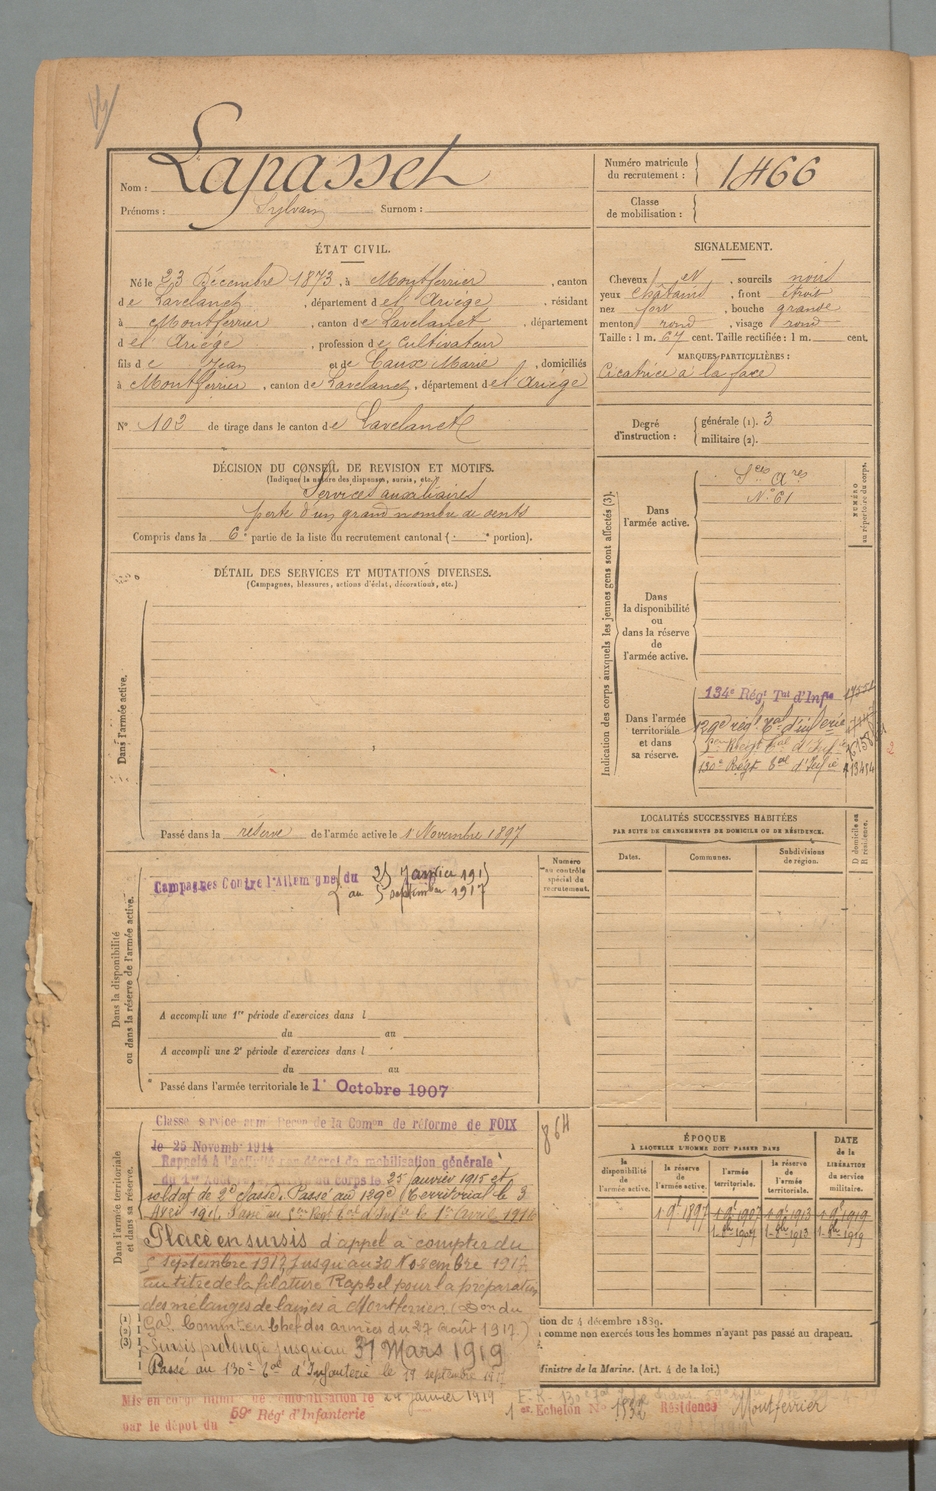 Nom : Lapasset
Prénoms : Sylvain Surnom :
Numéro matricule
du recrutement : 1466
Classe
de mobilisation :
ÉTAT CIVIL.
Né le 23 Décembre 1873, à Montferrier, canton
de Lavelanet, département de l'Ariège, résidant
à Montferrier, canton de Lavelanet, département
de l'Ariège, profession de Cultivateur
fils de Jean et de Caux Marie, domiciliés
à Montferrier, canton de Lavelanet, département de l'Ariège
N° 102 de tirage dans le canton de Lavelanet
SIGNALEMENT.
Cheveux N, sourcils noirs
yeux châtains, front étroit
nez fort, bouche grande
menton rond, visage rond
Taille : 1 m. 67 cent. Taille rectifiée : 1 m. cent.
MARQUES PARTICULIÈRES :
Cicatrice à la face
Degré
d'instruction :
générale (1). 3
militaire (2).
DÉCISION DU CONSEIL DE REVISION ET MOTIFS.
(Indiquer la nature des dispenses, sursis, etc.)
Services auxiliaires
perte d'un grand nombre de dents
Compris dans la 6e partie de la liste du recrutement cantonal ( e portion).
DÉTAIL DES SERVICES ET MUTATIONS DIVERSES.
(Campagnes, blessures, actions d'éclat, décorations, etc.)
Dans l'armée active.
Passé dans la réserve de l'armée active le 1 Novembre 1897
Indication des corps auxquels les jeunes gens sont affectés (3).
NUMÉRO
au répertoire du corps.
Dans
l'armée active.
Sces Ares
N° 61
Dans
la disponibilité
ou
dans la réserve
de
l'armée active.
Dans l'armée
territoriale
et dans
sa réserve.
134e Régt Tal d'Infie
129e régt tal d'infanterie
5e Régt tal d'Infie
130e Régt tal d'Infie 13454
LOCALITÉS SUCCESSIVES HABITÉES
PAR SUITE DE CHANGEMENTS DE DOMICILE OU DE RÉSIDENCE.
Dates. Communes. Subdivisions
de région.
D domicile ou
R résidence.
Dans la disponibilité
ou dans la réserve de l'armée active.
Numéro
au contrôle
spécial du
recrutement.
Campagnes Contre l'Allemagne du 25 Janvier 1915
au 5 septembre 1917
A accompli une 1re période d'exercices dans l
du au
A accompli une 2e période d'exercices dans l
du au
Passé dans l'armée territoriale le 1er Octobre 1907
Dans l'armée territoriale
et dans sa réserve.
864
Classé service armé Décon de la Comon de réforme de FOIX
le 25 Novembre 1914
Rappelé à l'activité par décret de mobilisation générale
du 1er Août au corps le 25 janvier 1915 et
soldat de 2e classe. Passé au 129e Territorial le 3
Avril 191 . Passé au 5e Régt tal d'Infie le 1er Avril 1916
Placé en sursis d'appel à compter du
5 septembre 1917 jusqu'au 30 Novembre 1917
au titre de la filature Raphel pour la préparation
des mélanges de laines à Montferrier (Don du
Gal Commt en Chef des armées du 27 Août 1917.)
Sursis prolongé jusqu'au 31 Mars 1919
Passé au 130e tal d'Infanterie le 19 septembre 1917
ÉPOQUE
À LAQUELLE L'HOMME DOIT PASSER DANS
la
disponibilité
de
l'armée active.
la réserve
de
l'armée active.
l'armée
territoriale.
la réserve
de
l'armée
territoriale.
DATE
de la
LIBÉRATION
du service
militaire.
1 9b 1897 1 9b 1907 1 9b 1913 1 9b 1919
1 8b 1907 1 8b 1913 1 8b 1919
tion du 4 décembre 1889.
comme non exercés tous les hommes n'ayant pas passé au drapeau.
Ministre de la Marine. (Art. 4 de la loi.)
Mis en congé illimité de démobilisation le 24 janvier 1919
1er Echelon N° 1832 Résidence Montferrier
par le dépôt du 59e Régt d'Infanterie